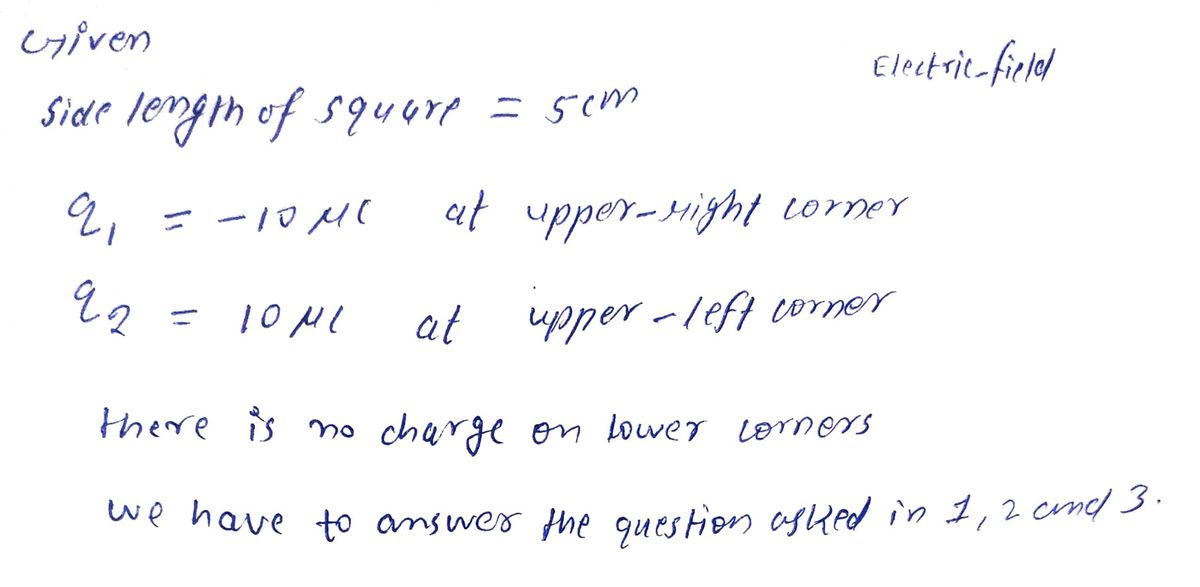 Given
Electric-field
Side length of square = 5cm
q₁ = -10 μC at upper-right corner
q₂ = 10 μC at upper-left corner
there is no charge on lower corners
we have to answer the question asked in 1, 2 and 3.